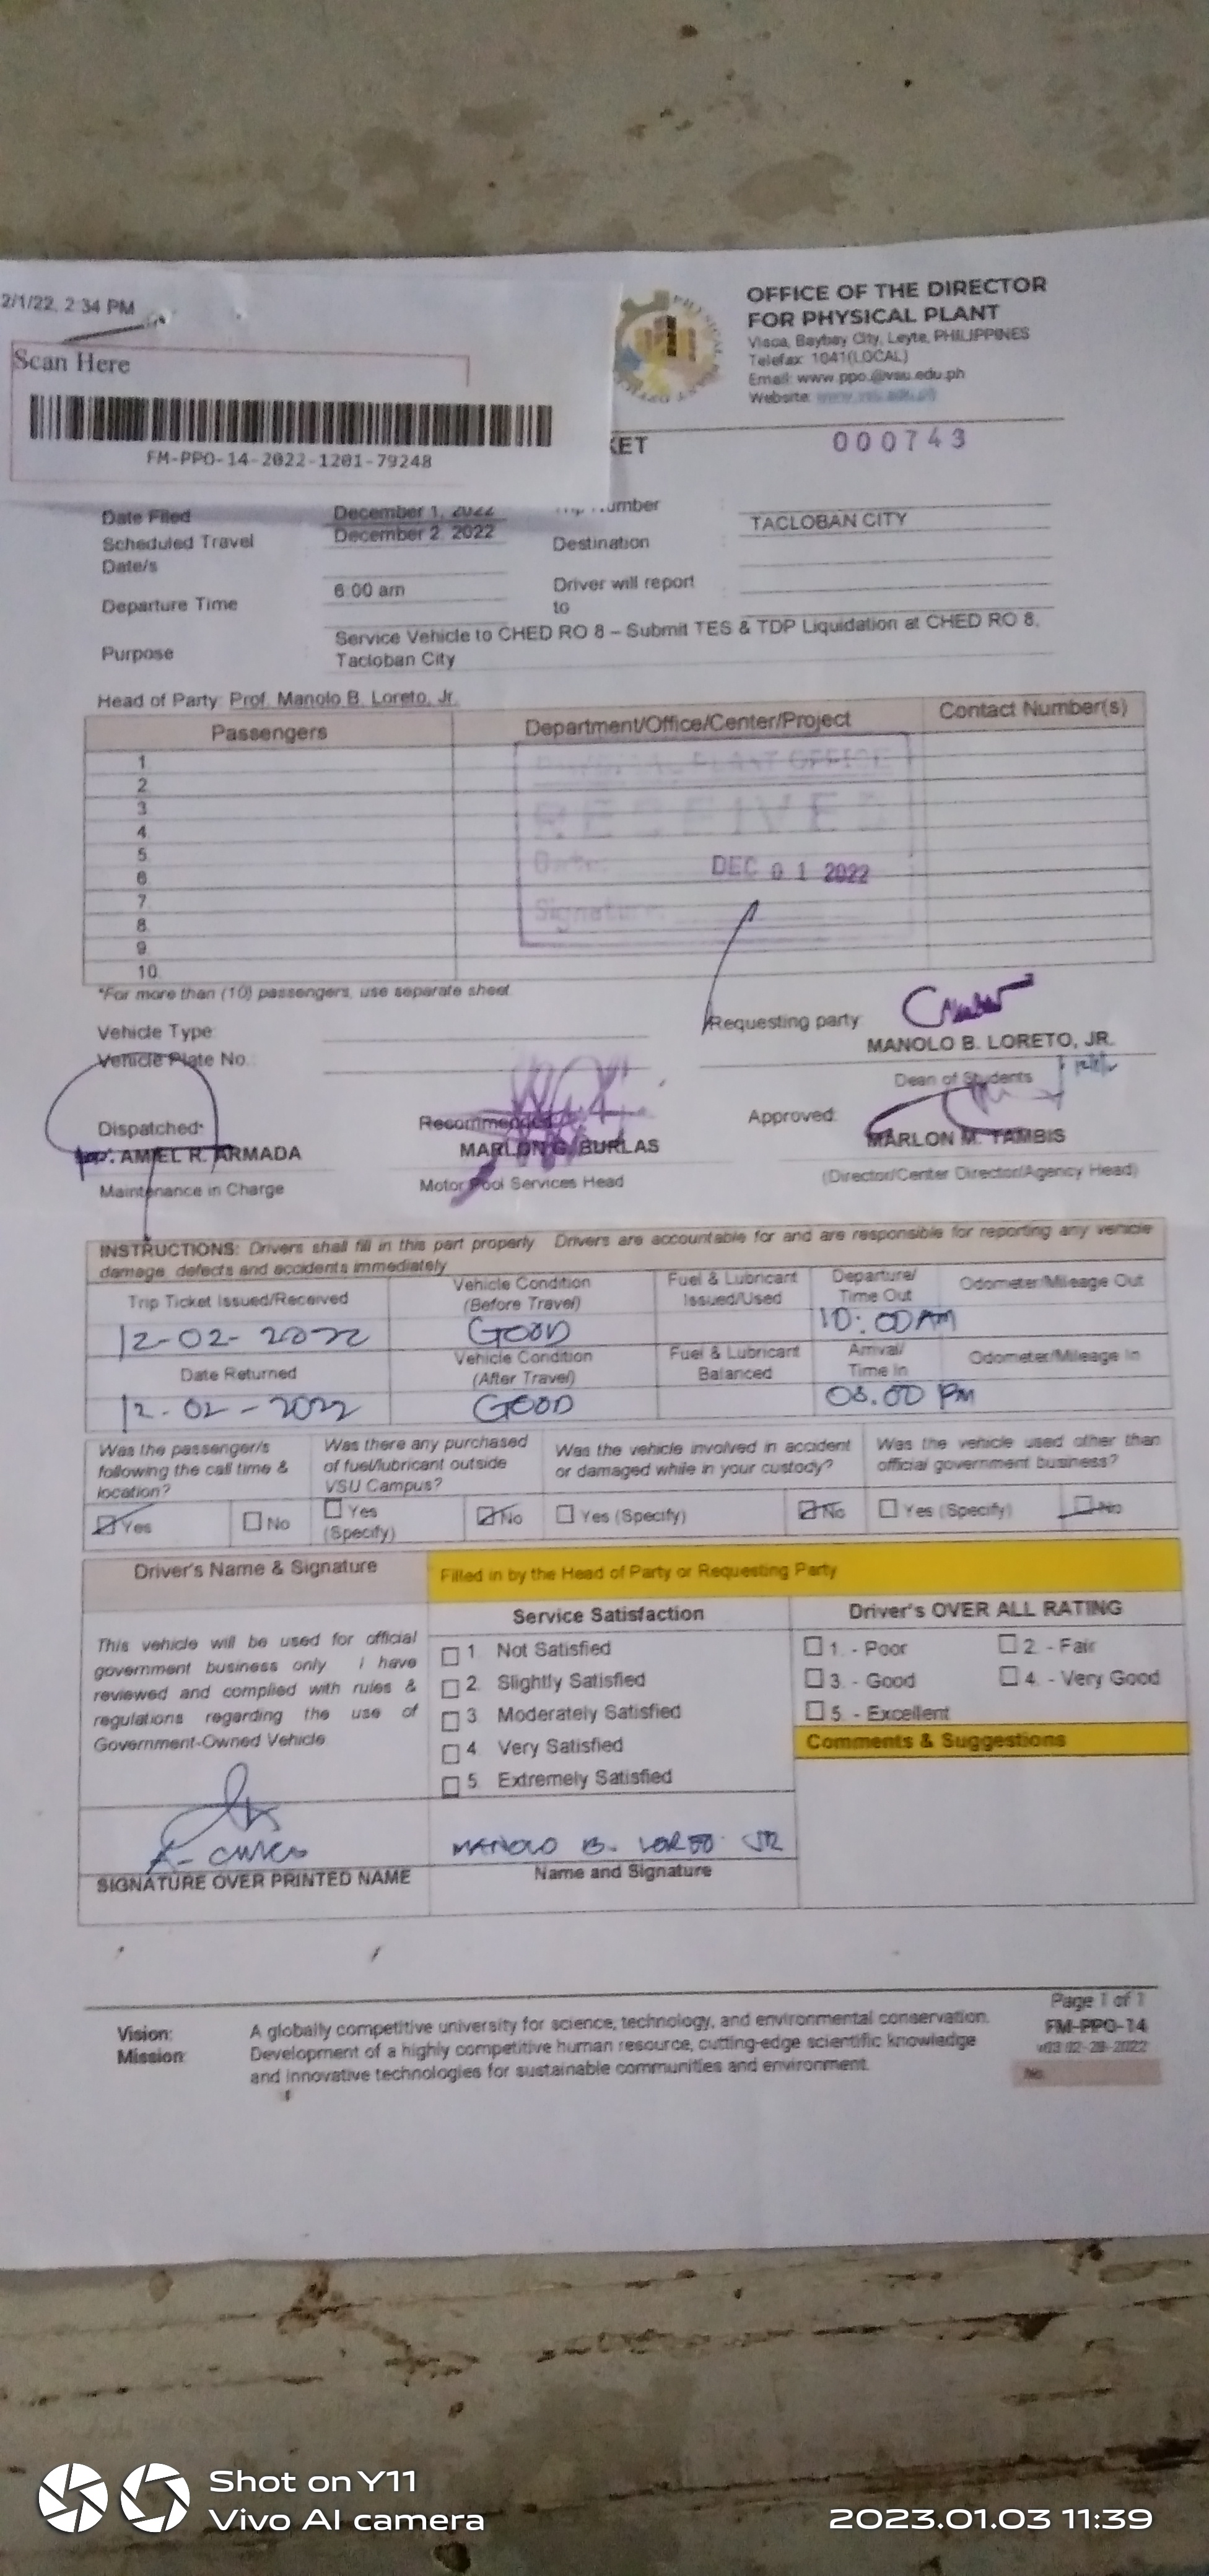 2/1/22, 2:34 PM
Scan Here
FM-PPO-14-2022-1201-79248
OFFICE OF THE DIRECTOR
FOR PHYSICAL PLANT
Visca, Baybay City, Leyte, PHILIPPINES
Telefax: 1041(LOCAL)
Email: www.ppo.@vsu.edu.ph
Website: www.vsu.edu.ph
KET
000743
Date Filed December 1, 2022 umber
Scheduled Travel Date/s December 2, 2022 Destination TACLOBAN CITY
Departure Time 6:00 am Driver will report to
Purpose Service Vehicle to CHED RO 8 – Submit TES & TDP Liquidation at CHED RO 8,
Tacloban City
Head of Party: Prof. Manolo B. Loreto, Jr.
Passengers Department/Office/Center/Project Contact Number(s)
1.
2.
3.
4.
5.
6.
7.
8.
9.
10.
PHYSICAL PLANT OFFICE
RECEIVED
Date: DEC 01 2022
Signature:
*For more than (10) passengers, use separate sheet.
Vehicle Type:
Vehicle Plate No.:
Requesting party:
MANOLO B. LORETO, JR.
Dean of Students
Dispatched: Recommended Approved:
AMIEL R. ARMADA MARLON G. BURLAS MARLON M. TAMBIS
Maintenance in Charge Motor Pool Services Head (Director/Center Director/Agency Head)
INSTRUCTIONS: Drivers shall fill in this part properly Drivers are accountable for and are responsible for reporting any vehicle
damage, defects and accidents immediately
Trip Ticket Issued/Received Vehicle Condition (Before Travel) Fuel & Lubricant Issued/Used Departure/ Time Out Odometer/Mileage Out
12-02-2022 GOOD 10:00AM
Date Returned Vehicle Condition (After Travel) Fuel & Lubricant Balanced Arrival/ Time In Odometer/Mileage In
12-02-2022 GOOD 08.00 PM
Was the passenger/s following the call time & location? Was there any purchased of fuel/lubricant outside VSU Campus? Was the vehicle involved in accident or damaged while in your custody? Was the vehicle used other than official government business?
Yes No Yes (Specify) No Yes (Specify) No Yes (Specify) No
Driver's Name & Signature Filled in by the Head of Party or Requesting Party
Service Satisfaction Driver's OVER ALL RATING
This vehicle will be used for official
government business only I have
reviewed and complied with rules &
regulations regarding the use of
Government-Owned Vehicle
1. Not Satisfied
2. Slightly Satisfied
3. Moderately Satisfied
4. Very Satisfied
5. Extremely Satisfied
1. - Poor 2. - Fair
3. - Good 4. - Very Good
5. - Excellent
Comments & Suggestions
MANOLO B. LORETO JR
SIGNATURE OVER PRINTED NAME Name and Signature
Vision: A globally competitive university for science, technology, and environmental conservation.
Mission: Development of a highly competitive human resource, cutting-edge scientific knowledge
and innovative technologies for sustainable communities and environment.
Page 1 of 1
FM-PPO-14
v03 02-28-2022
No.
Shot on Y11
Vivo AI camera
2023.01.03 11:39